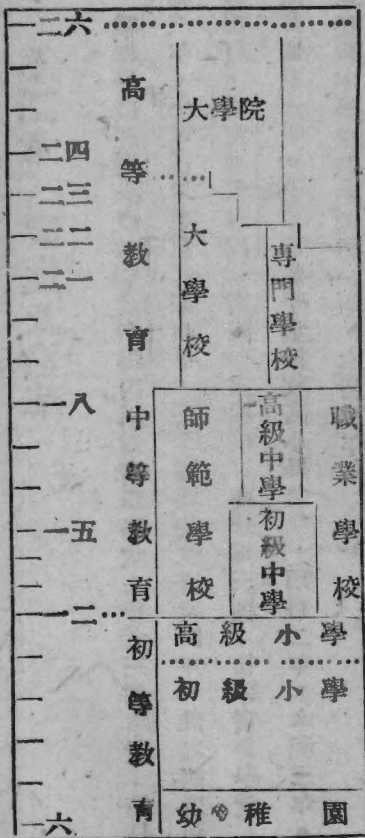 二六
二四
二三
二二
二一
一八
一五
一二
六
高等教育
中等教育
初等教育
大學院
大學校
專門學校
師範學校
高級中學
初級中學
職業學校
高級小學
初級小學
幼稚園